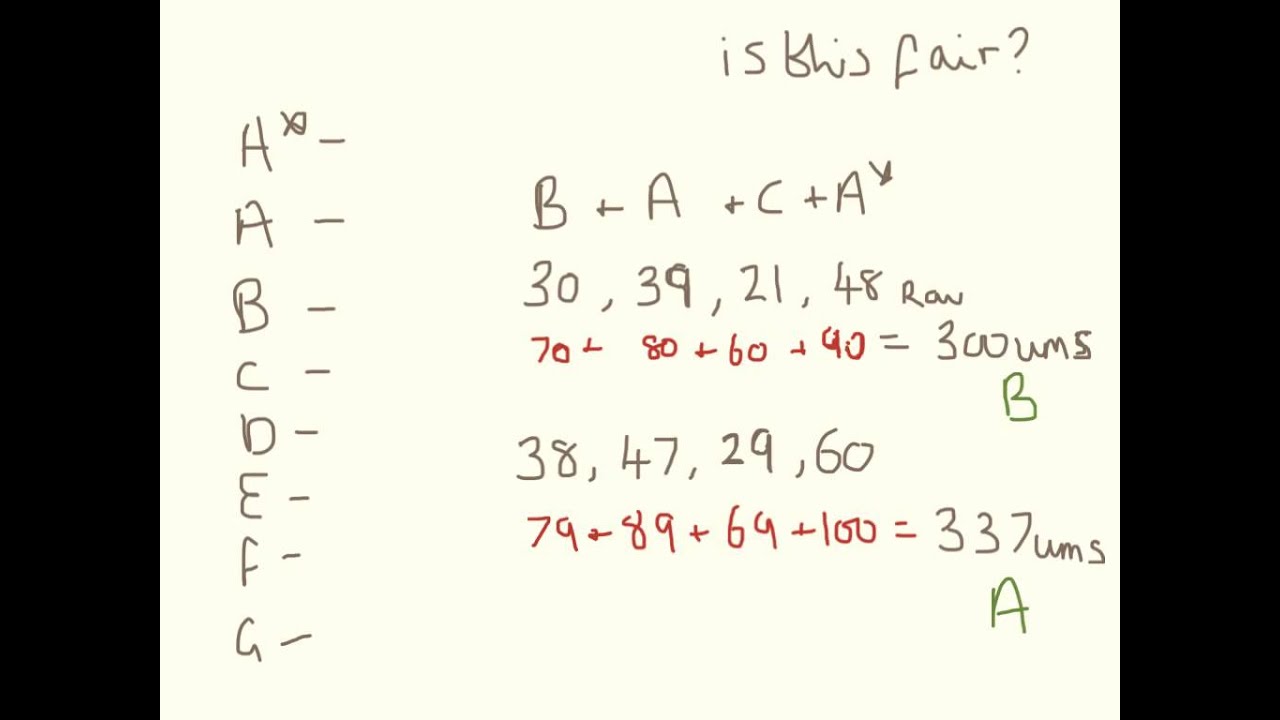 is this fair?
A* -
A -
B -
C -
D -
E -
F -
G -
B + A + C + A*
30, 39, 21, 48 Raw
70 + 80 + 60 + 90 = 300 ums
B
38, 47, 29, 60
79 + 89 + 69 + 100 = 337 ums
A